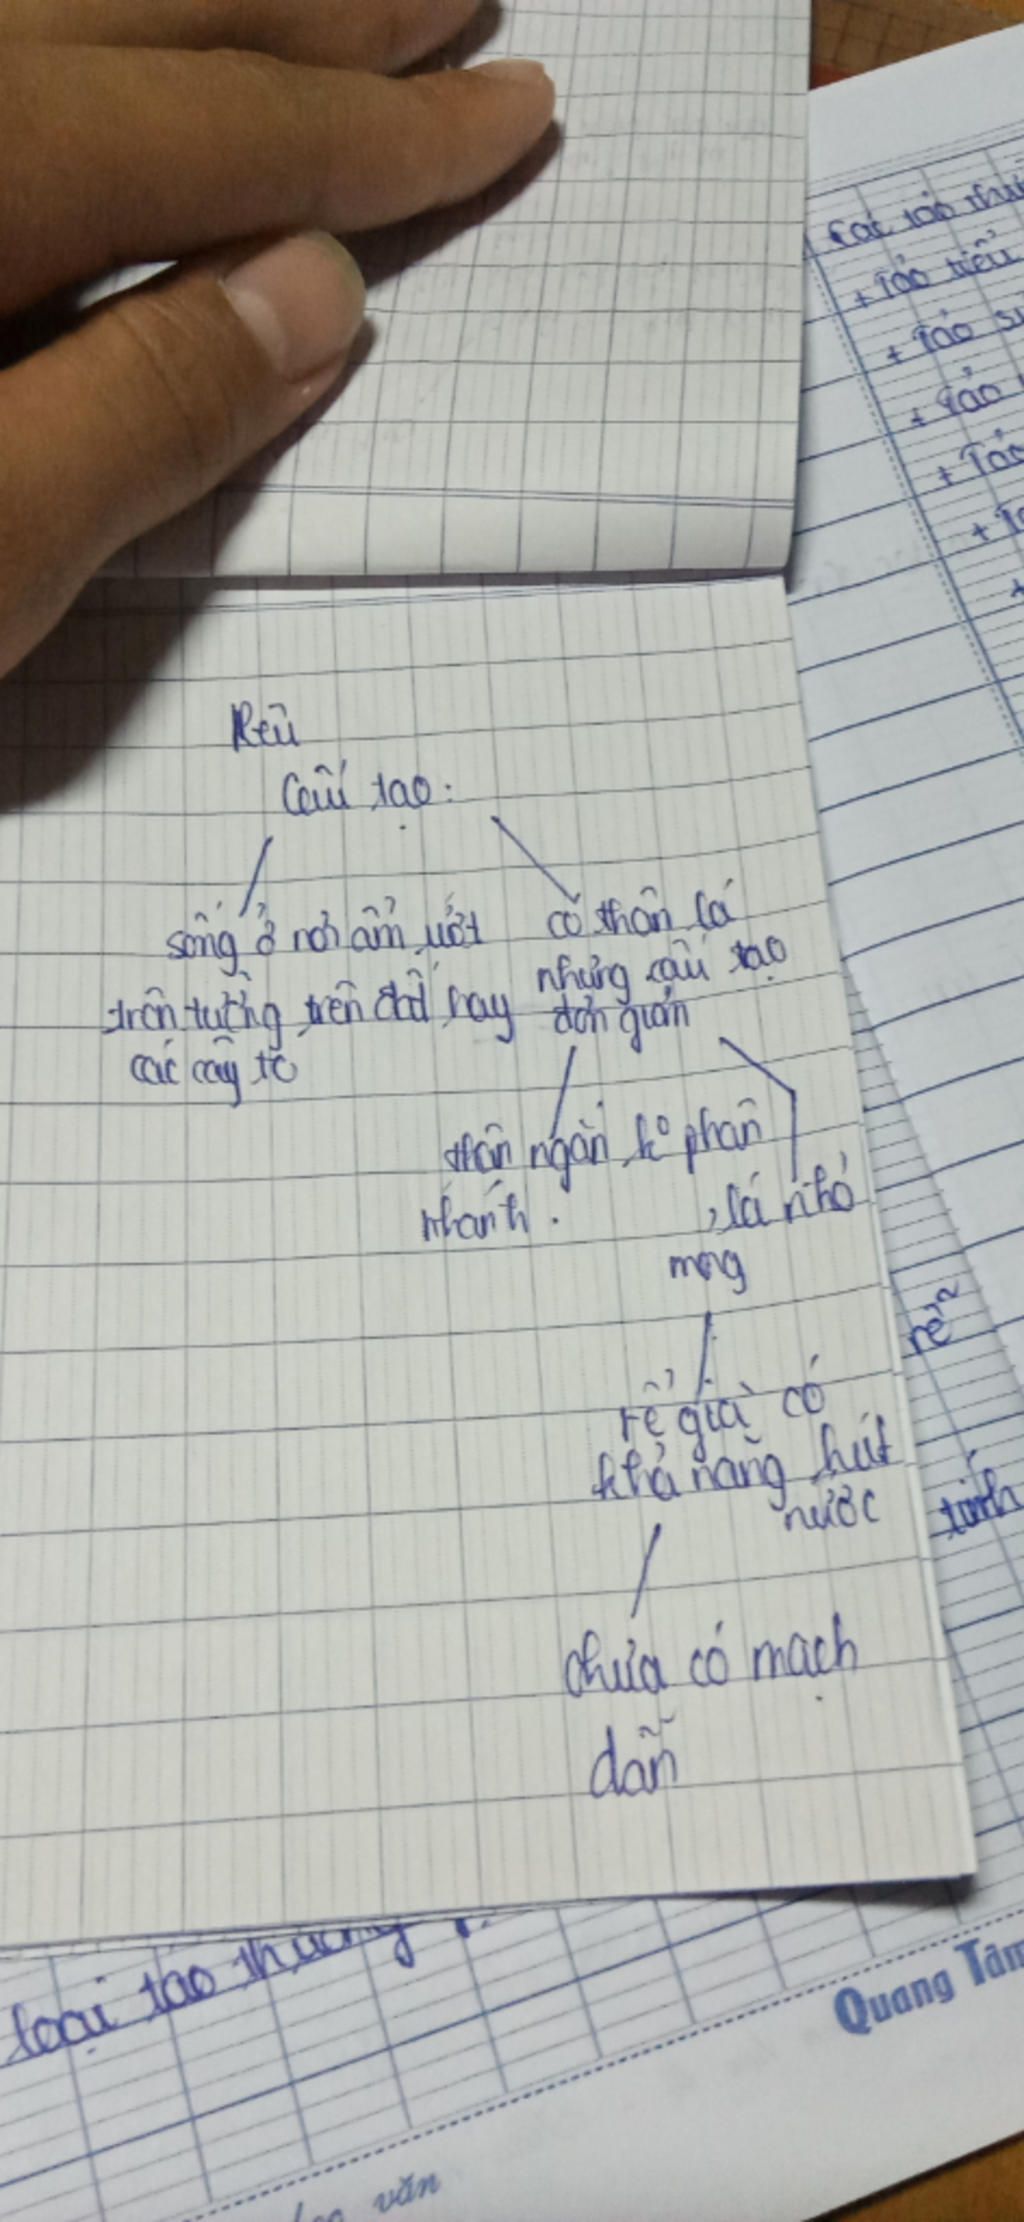 Rêu
Cấu tạo:
sống ở nơi ẩm ướt
trên tường, trên đất hay
các cây to
có thân lá
nhưng cấu tạo
đơn giản
thân ngắn, ko phân
nhánh.
, lá nhỏ
mỏng
rễ giả có
khả năng hút
nước
chưa có mạch
dẫn
Các tảo
+ Tảo tiểu
+ Tảo
+ Tảo
+ Tảo
tính
loại tảo thường
Quang Tâm
văn